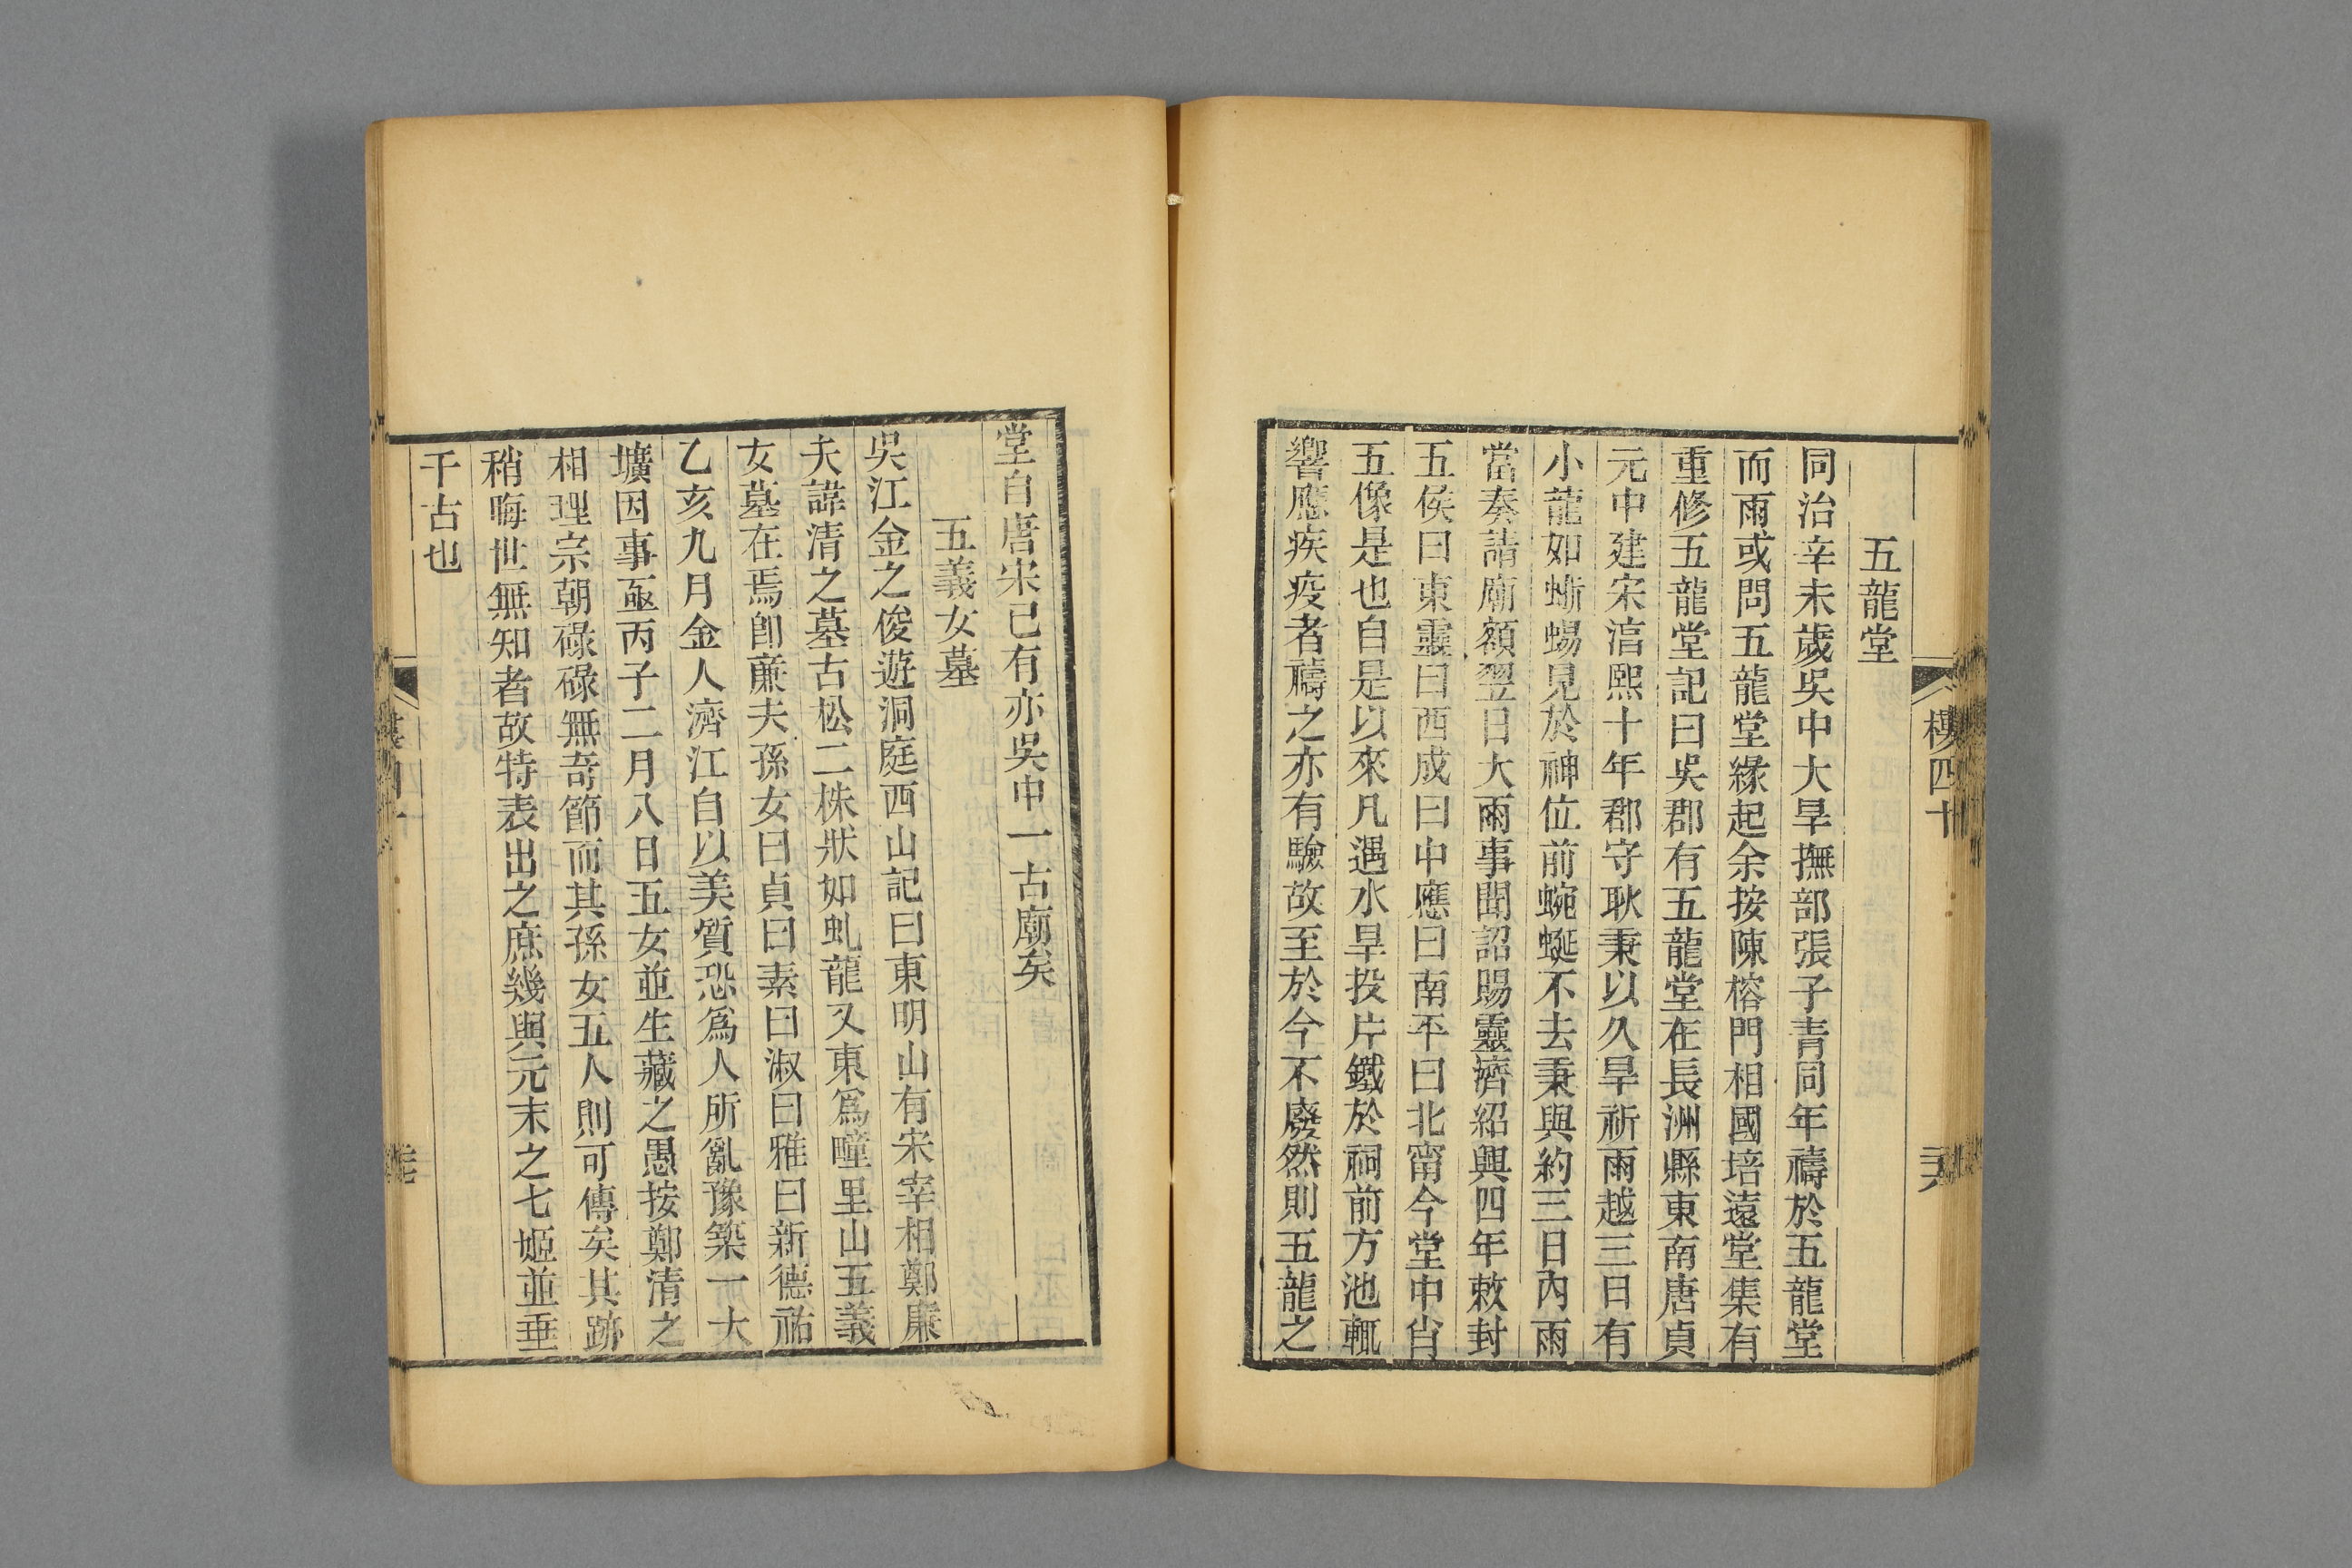 樓四十
五龍堂
同治辛未歲吳中大旱撫部張子青同年禱於五龍堂
而雨或問五龍堂緣起余按陳榕門相國培遠堂集有
重修五龍堂記曰吳郡有五龍堂在長洲縣東南唐貞
元中建宋湻熙十年郡守耿秉以久旱祈雨越三日有
小龍如蜥蜴見於神位前蜿蜒不去秉與約三日內雨
當奏請廟額翌日大雨事聞詔賜靈濟紹興四年敕封
五侯曰東靈曰西成曰中應曰南平曰北甯今堂中肖
五像是也自是以來凡遇水旱投片鐵於祠前方池輒
響應疾疫者禱之亦有驗故至於今不廢然則五龍之
堂自唐宋已有亦吳中一古廟矣
五義女墓
吳江金之俊遊洞庭西山記曰東明山有宋宰相鄭廉
夫諱清之墓古松二株狀如虬龍又東爲疃里山五義
女墓在焉卽廉夫孫女曰貞曰素曰淑曰雅曰新德祐
乙亥九月金人濟江自以美質恐爲人所亂豫築一大
壙因事亟丙子二月八日五女並生藏之愚按鄭清之
相理宗朝碌碌無奇節而其孫女五人則可傳矣其跡
稍晦世無知者故特表出之庶幾與元末之七姬並垂
千古也